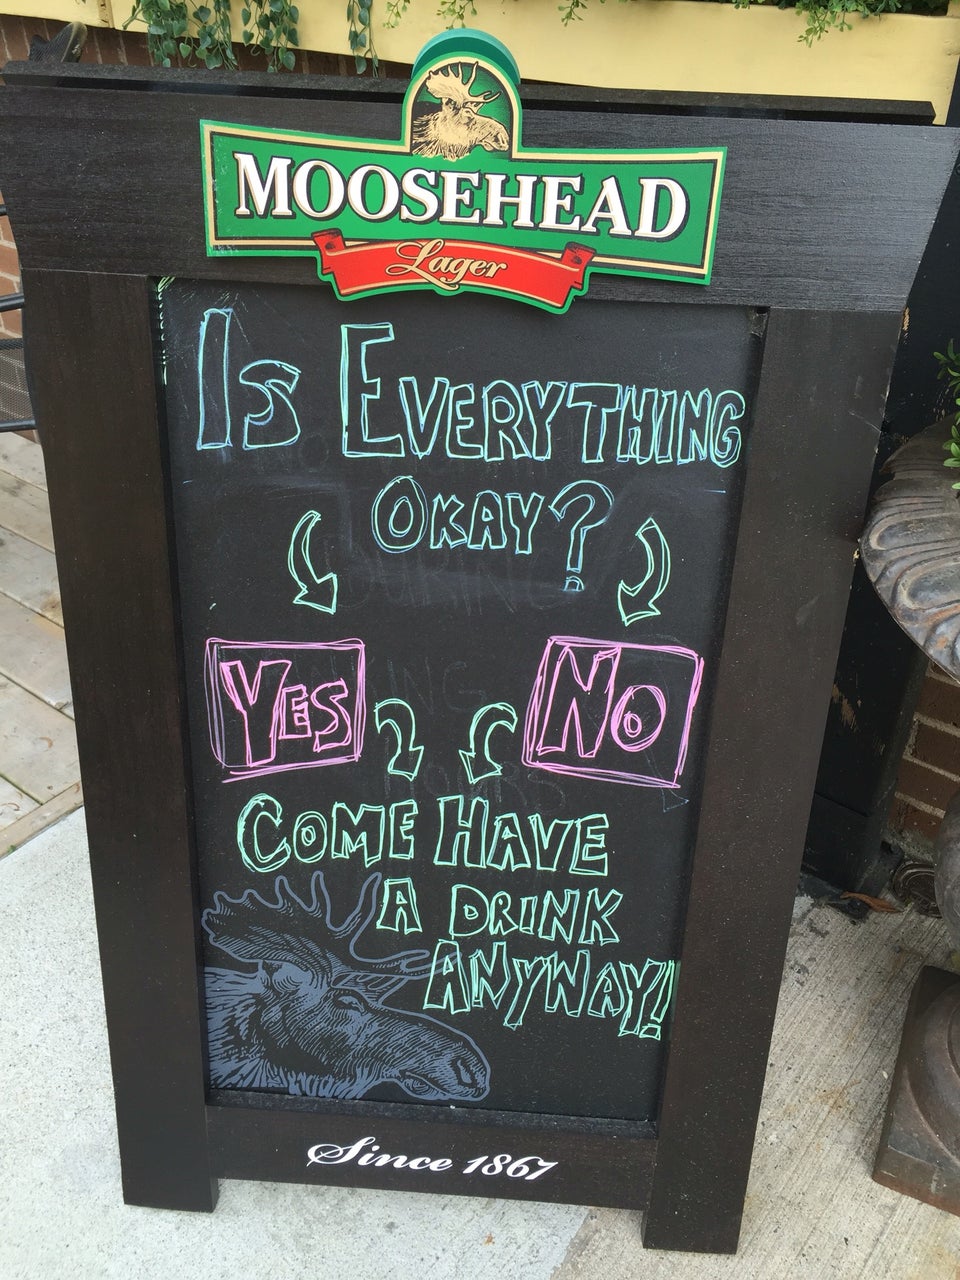 MOOSEHEAD
Lager
IS EVERYTHING
OKAY?
YES
NO
COME HAVE
A DRINK
ANYWAY!
Since 1867